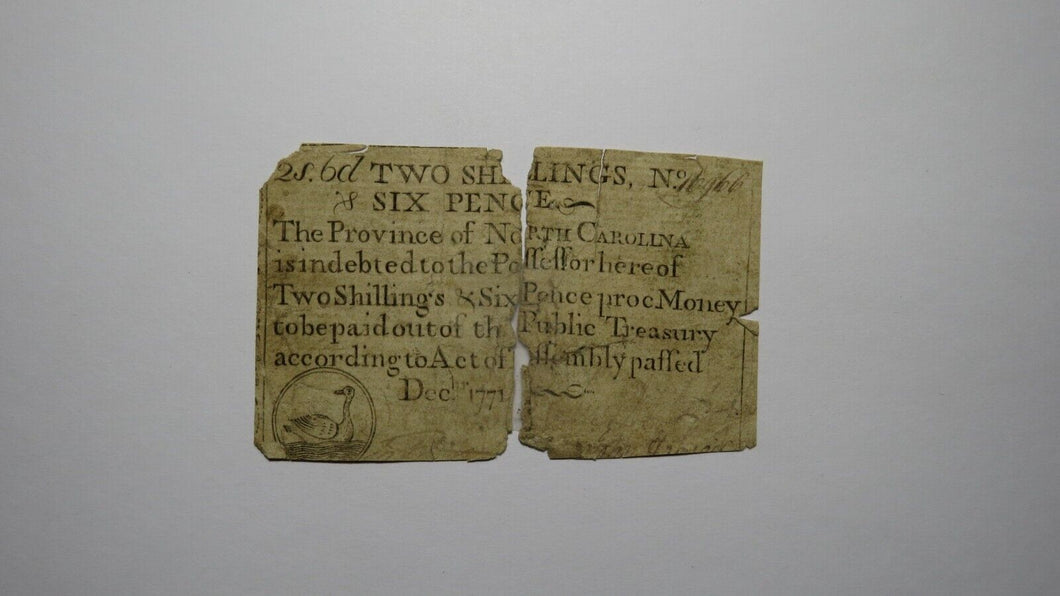 2s. 6d TWO SHILLINGS, No.
& SIX PENCE
The Province of NORTH CAROLINA
is indebted to the Poſſeſſor hereof
Two Shillings & Six Pence proc Money
to be paid out of the Public Treasury
according to Act of Aſſembly paſſed
Decbr. 1771